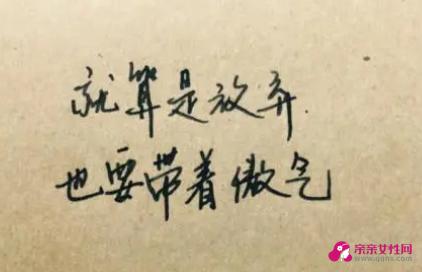 就算是放弃
也要带着傲气
亲亲女性网
www.qqns.com